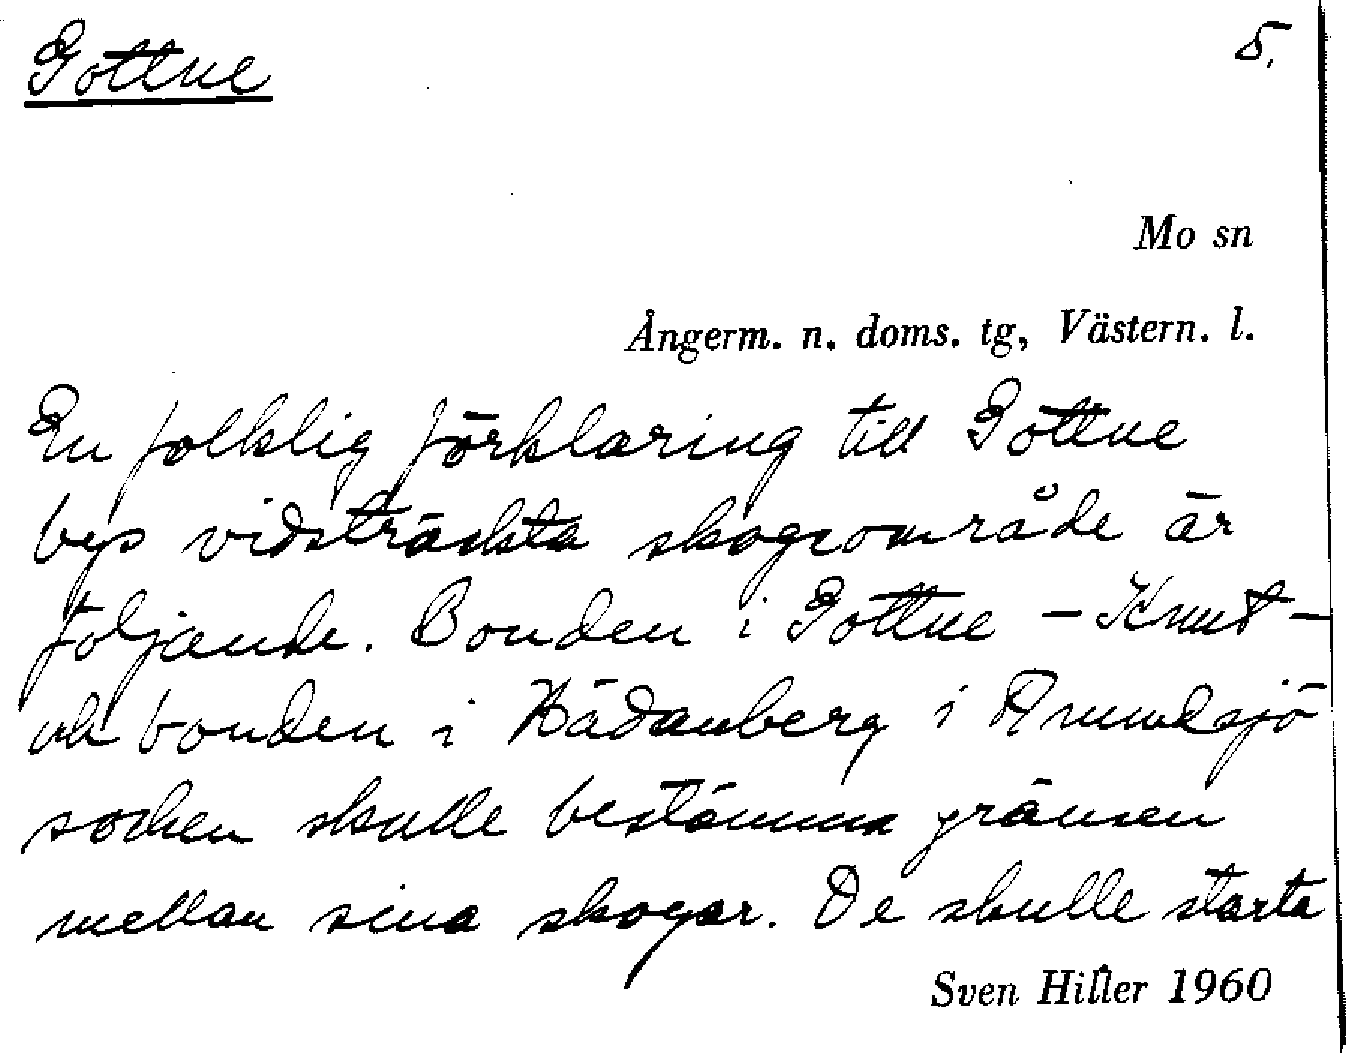 Gottne
5.
Mo sn
Ångerm. n. doms. tg, Västern. l.
En folklig förklaring till Gottne
bys vidsträckta skogsområde är
följande. Bonden i Gottne – Knut –
och bonden i Hädanberg i Anundsjö
socken skulle bestämma gränsen
mellan sina skogar. De skulle starta
Sven Hiller 1960